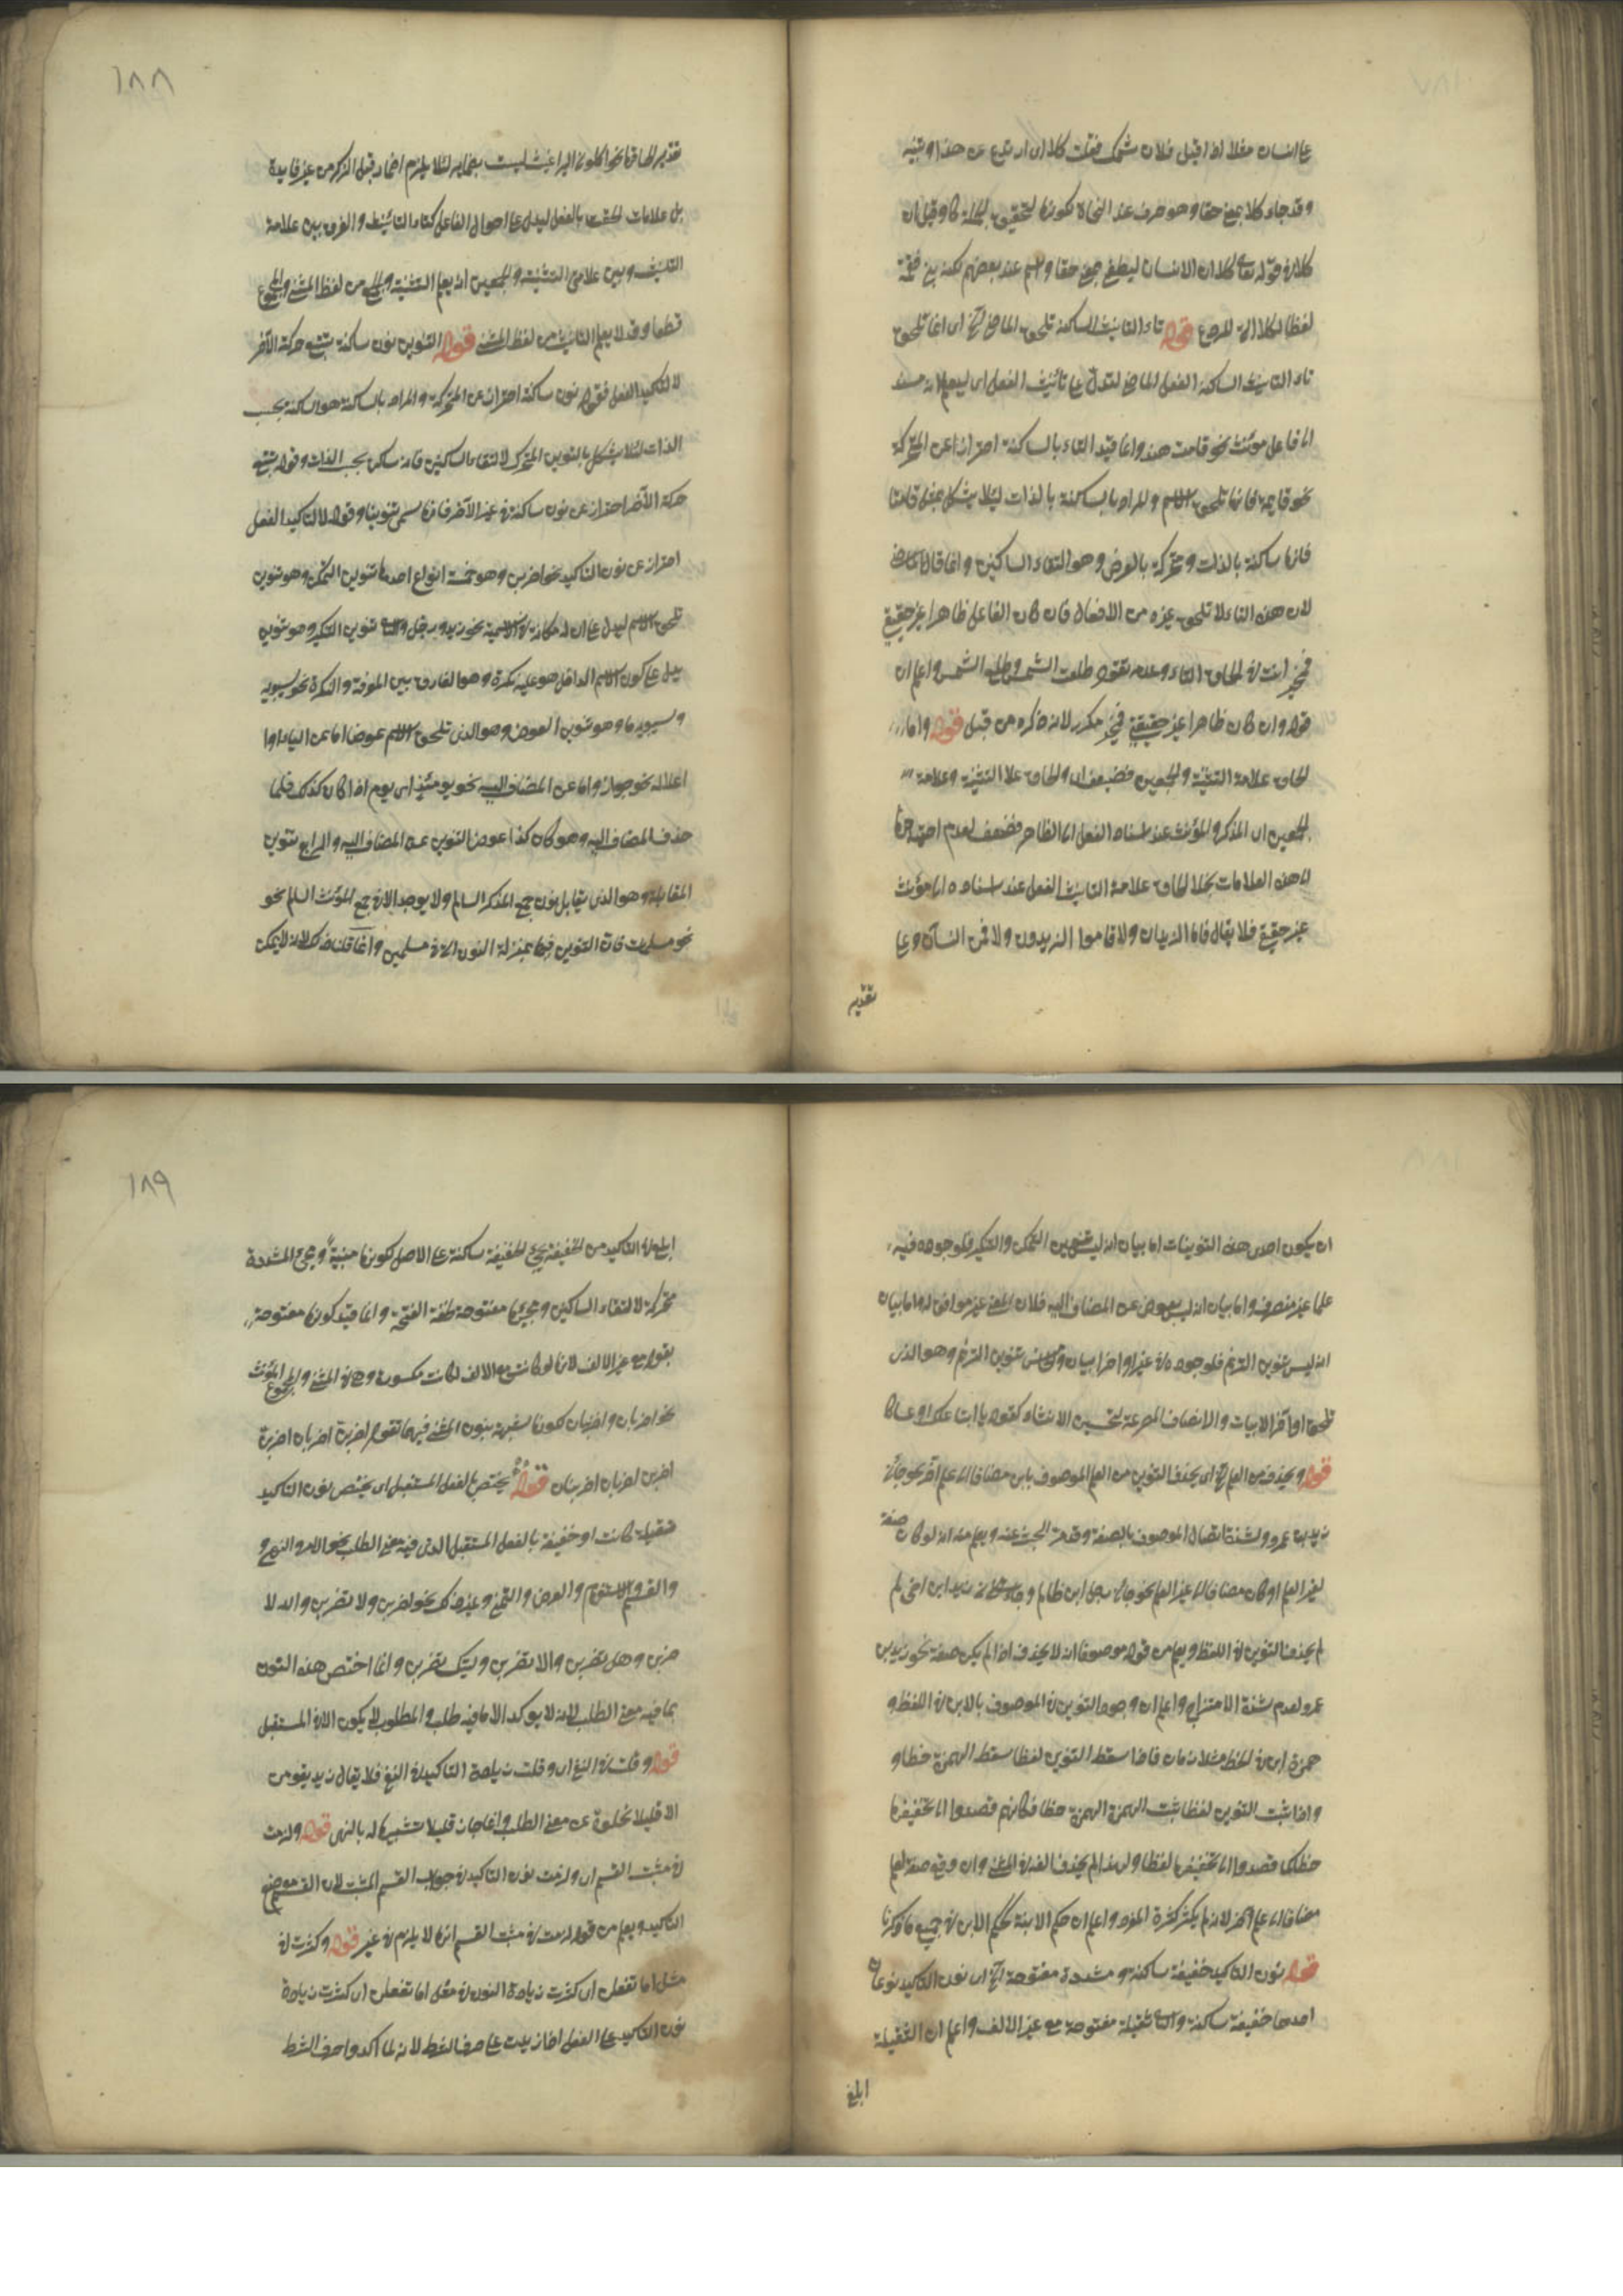 على انسان مثلا اذا قيل فلان شتمك فقلت كلا اى ارتدع عن هذا وتنبه
وقد جاء كلا بمعنى حقا وهو حرف عند النحاة لكونها لتحقيق الجملة كان وقيل ان
كلا في قوله تعالى كلا ان الانسان ليطغى بمعنى حقا واسم عند بعضهم لكنه بنى
لفظا لكلا التي للردع قوله تاء التانيث الساكنة تلحق الماضى الخ اى انما تلحق
تاء التانيث الساكنة الفعل الماضى لتدل على تأنيث الفعل اى ليعلم انه مسند
الى فاعل مونث نحو قامت هند وانما قيد التاء بالساكنة احترازا عن المتحركة
نحو قايمة فانها تلحق الاسم والمراد بالساكنة بالذات لئلا يشكل بمثل قامتا
فانها ساكنة بالذات ومتحركة بالعرض وهو التقاء الساكنين وانما قال الماضى
لان هذه التاء لا تلحق غيره من الافعال فان كان الفاعل ظاهرا غير حقيقى
فمخير انت في الحاق التاء وعدمه تقول طلعت الشمس وطلع الشمس واعلم ان
قوله وان كان ظاهرا غير حقيقى فمخير مكرر لانه ذكره من قبل قوله واما
الحاق علامة التثنية والجمعين فضعيف اى والحاق علامة التثنية وعلامة
الجمعين اى المذكر والمؤنث عند اسناد الفعل الى الظاهر فضعيف لعدم احتياجها
الى هذه العلامات بخلاف الحاق علامة التانيث الفعل عند اسناده الى مؤنث
غير حقيقى فلا يقال قاما الزيدان ولا قاموا الزيدون ولا قمن النساء وعلى
تقدير
١٨٨
تقدير الحاقها نحو اكلونى البراغيث ليست بضماير لئلا يلزم اضمار قبل الذكر من غير فايدة
بل علامات الحقت بالفعل ليدل على احوال الفاعل كتاء التانيث والفرق بين علامة
التانيث وبين علامتى التثنية والجمعين انه يعلم التثنية والجمع من لفظ المثنى والمجموع
قطعا وقد لا يعلم التانيث من لفظ المثنى قوله التنوين نون ساكنة تتبع حركة الآخر
لا لتاكيد الفعل فقوله نون ساكنة احتراز عن المتحركة والمراد بالساكنة هو الساكنة بحسب
الذات لئلا يشكل بالتنوين المتحرك لالتقاء الساكنين فانه ساكن بحسب الذات وقوله تتبع
حركة الآخر احتراز عن نون ساكنة في غير الآخر فانها لا يسمى تنوينا وقوله لا لتاكيد الفعل
احتراز عن نون التاكيد نحو اضربن وهو خمسة انواع احدها تنوين التمكن وهو تنوين
تلحق الاسم ليدل على ان له مكانة في الاسمية نحو زيد ورجل والثاني تنوين التنكير وهو تنوين
يدل على كون الاسم الداخل هو عليه نكرة وهو الفارق بين المعرفة والنكرة نحو سيبويه
وسيبويه ما وهو تنوين العوض وهو الذى تلحق الاسم عوضا اما عن الياء اذا
اعلاله نحو جوار واما عن المضاف اليه نحو يومئذ اى يوم اذا كان كذلك فلما
حذف المضاف اليه وهو كان كذا عوض التنوين عن المضاف اليه والرابع تنوين
المقابلة وهو الذى يقابل نون جمع المذكر السالم ولا يوجد الا في جمع المؤنث السالم نحو
نحو مسلمات فان التنوين فيها بمنزلة النون التي في مسلمين وانما قلنا ذلك لانه لا يمكن
ان يكون احدى هذه التنوينات اما بيان انه ليس تنوين التمكن والتنكير فلوجوده فيه
علما غير منصرف واما بيان انه ليس بعوض عن المضاف اليه فلان المعنى غير موافق له واما بيان
انه ليس تنوين الترنم فلوجوده في غير اواخر ابيات والخامس تنوين الترنم وهو الذى
تلحق اواخر الابيات والانصاف المصرعة لتحسين الانشاد كقوله يا ابتا علك او عساكا
قوله ويحذف من العلم الخ اى يحذف التنوين من العلم الموصوف بابن مضافا الى علم آخر نحو جاءنى
زيد بن عمرو لشدة اتصال الموصوف بالصفة وقد مر البحث عنه ويعلم منه انه لو كان صفة
لغير العلم او كان مضافا الى غير العلم نحو جاءنى رجل ابن ظالم وجاءنى زيد ابن اخى لم
لم يحذف التنوين في اللفظ ويعلم من قوله موصوفا انه لا يحذف اذا لم يكن صفة نحو زيد بن
عمرو لعدم شدة الامتزاج واعلم ان وجود التنوين في الموصوف بالابن في اللفظ و
همزة ابن في الخط متلازمان فاذا سقط التنوين لفظا سقط الهمزة خطا و
واذا ثبت التنوين لفظا ثبت الهمزة الهمزة خطا فكانهم قصدوا الى تخفيفها
خطا كما قصدوا الى تخفيفها لفظا ولهذا لم يحذف الف في المثنى وان وقع صفة لعلم
مضافا الى علم آخر لانه لم يكثر كثرة المفرد واعلم ان حكم الابنة كحكم الابن في جميع ما ذكرنا
قوله نون التاكيد خفيفة ساكنة ومشددة مفتوحة الخ اى نون التاكيد نوعان
احدهما خفيفة ساكنة والثاني ثقيلة مفتوحة مع غير الالف واعلم ان الثقيلة
ابلغ
١٨٩
ابلغ في التاكيد من الخفيفة يجئ الخفيفة ساكنة على الاصل لكونها مبنية ويجئ المشددة
متحركة لالتقاء الساكنين ويجيئها مفتوحة لخفة الفتحة وانما قيد كونها مفتوحة
بقوله مع غير الالف لانها لو كانت مع الالف لكانت مكسورة وهى في المثنى والمجموع المؤنث
نحو اضربان واضربنان لكونها شبيهة بنون المثنى فيهما تقول اضربن اضربان اضربن
اضربن اضربان اضربنان قوله يختص بالفعل المستقبل اى يختص نون التاكيد
ثقيلة كانت او خفيفة بالفعل المستقبل الذى فيه معنى الطلب نحو الامر والنهى و
والقسم والاستفهام والعرض والتمنى وغير ذلك نحو اضربن ولا تضربن والله لا
ضربن وهل تضربن والا تضربن وليتك تضربن وانما اختص هذه النون
بما فيه معنى الطلب لانه لا يوكد الا ما فيه طلب والمطلوب لا يكون الا في المستقبل
قوله وقلت في النفى اى وقلت زيادة التاكيد في النفى فلا يقال زيد يقومن
الا قليلا لخلوه عن معنى الطلب وانما جاز قليلا تشبيها له بالنهى قوله ولزمت
في مثبت القسم اى ولزمت نون التاكيد في جواب القسم المثبت لان القسم موضع
التاكيد ويعلم من قوله لزمت في مثبت القسم انها لا يلزم في غيره قوله وكثرت في
مثل اما تفعلن اى كثرت زيادة النون في مثل اما تفعلن اى كثرت زيادة
نون التاكيد على الفعل اذا زيدت على حرف الشرط لانه لما اكدوا حرف الشرط